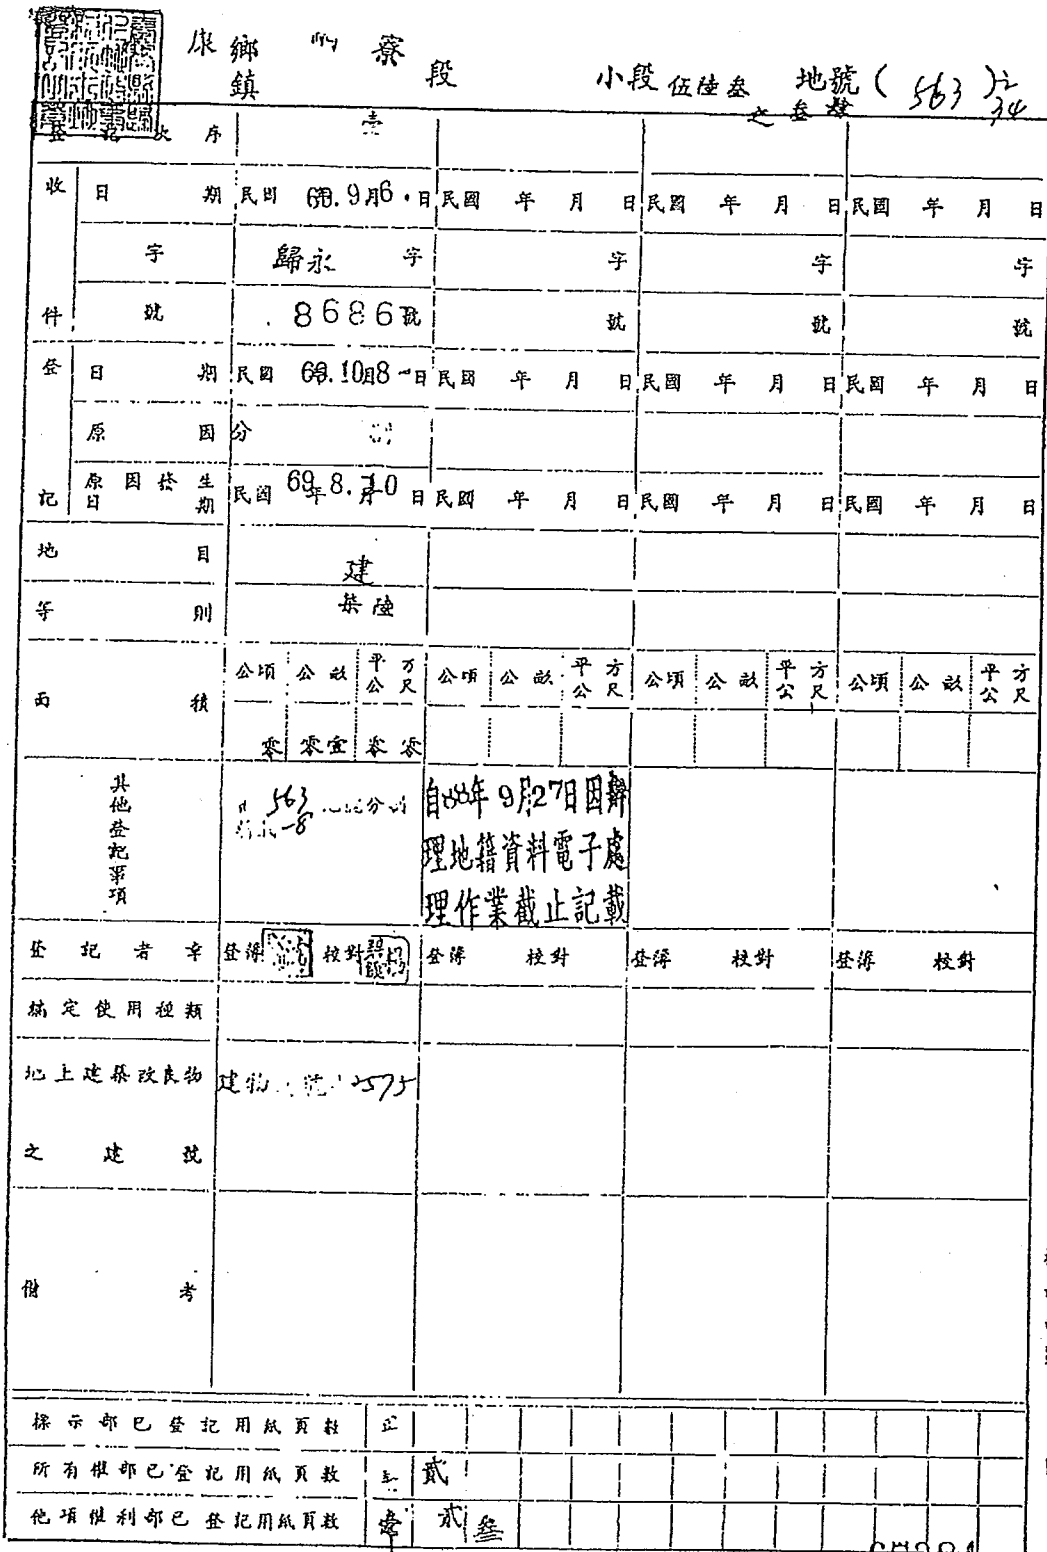 鄉 寮
鎮 段 小段 伍陸叁 地號 ( 563 ) 之
之叁肆 34
登記次序 壹
收件 日期 民國 69.9月6日 民國 年 月 日 民國 年 月 日 民國 年 月 日
字 歸永 字 字 字 字
號 8686號 號 號 號
登記 日期 民國 69.10月8日 民國 年 月 日 民國 年 月 日 民國 年 月 日
原因 分
原因發生日期 民國 69年8.月10日 民國 年 月 日 民國 年 月 日 民國 年 月 日
地目 建
等則 陸
面積 公頃 公畝 平方公尺 公頃 公畝 平方公尺 公頃 公畝 平方公尺 公頃 公畝 平方公尺
零 零壹 零零
其他登記事項 563 -8 分
自88年9月27日因辦
理地籍資料電子處
理作業截止記載
登記者章 登簿 校對 登簿 校對 登簿 校對 登簿 校對
編定使用種類
地上建築改良物 建物 2575
之建號
備考
標示部已登記用紙頁數
所有權部已登記用紙頁數 貳
他項權利部已登記用紙頁數 壹 貳 叁